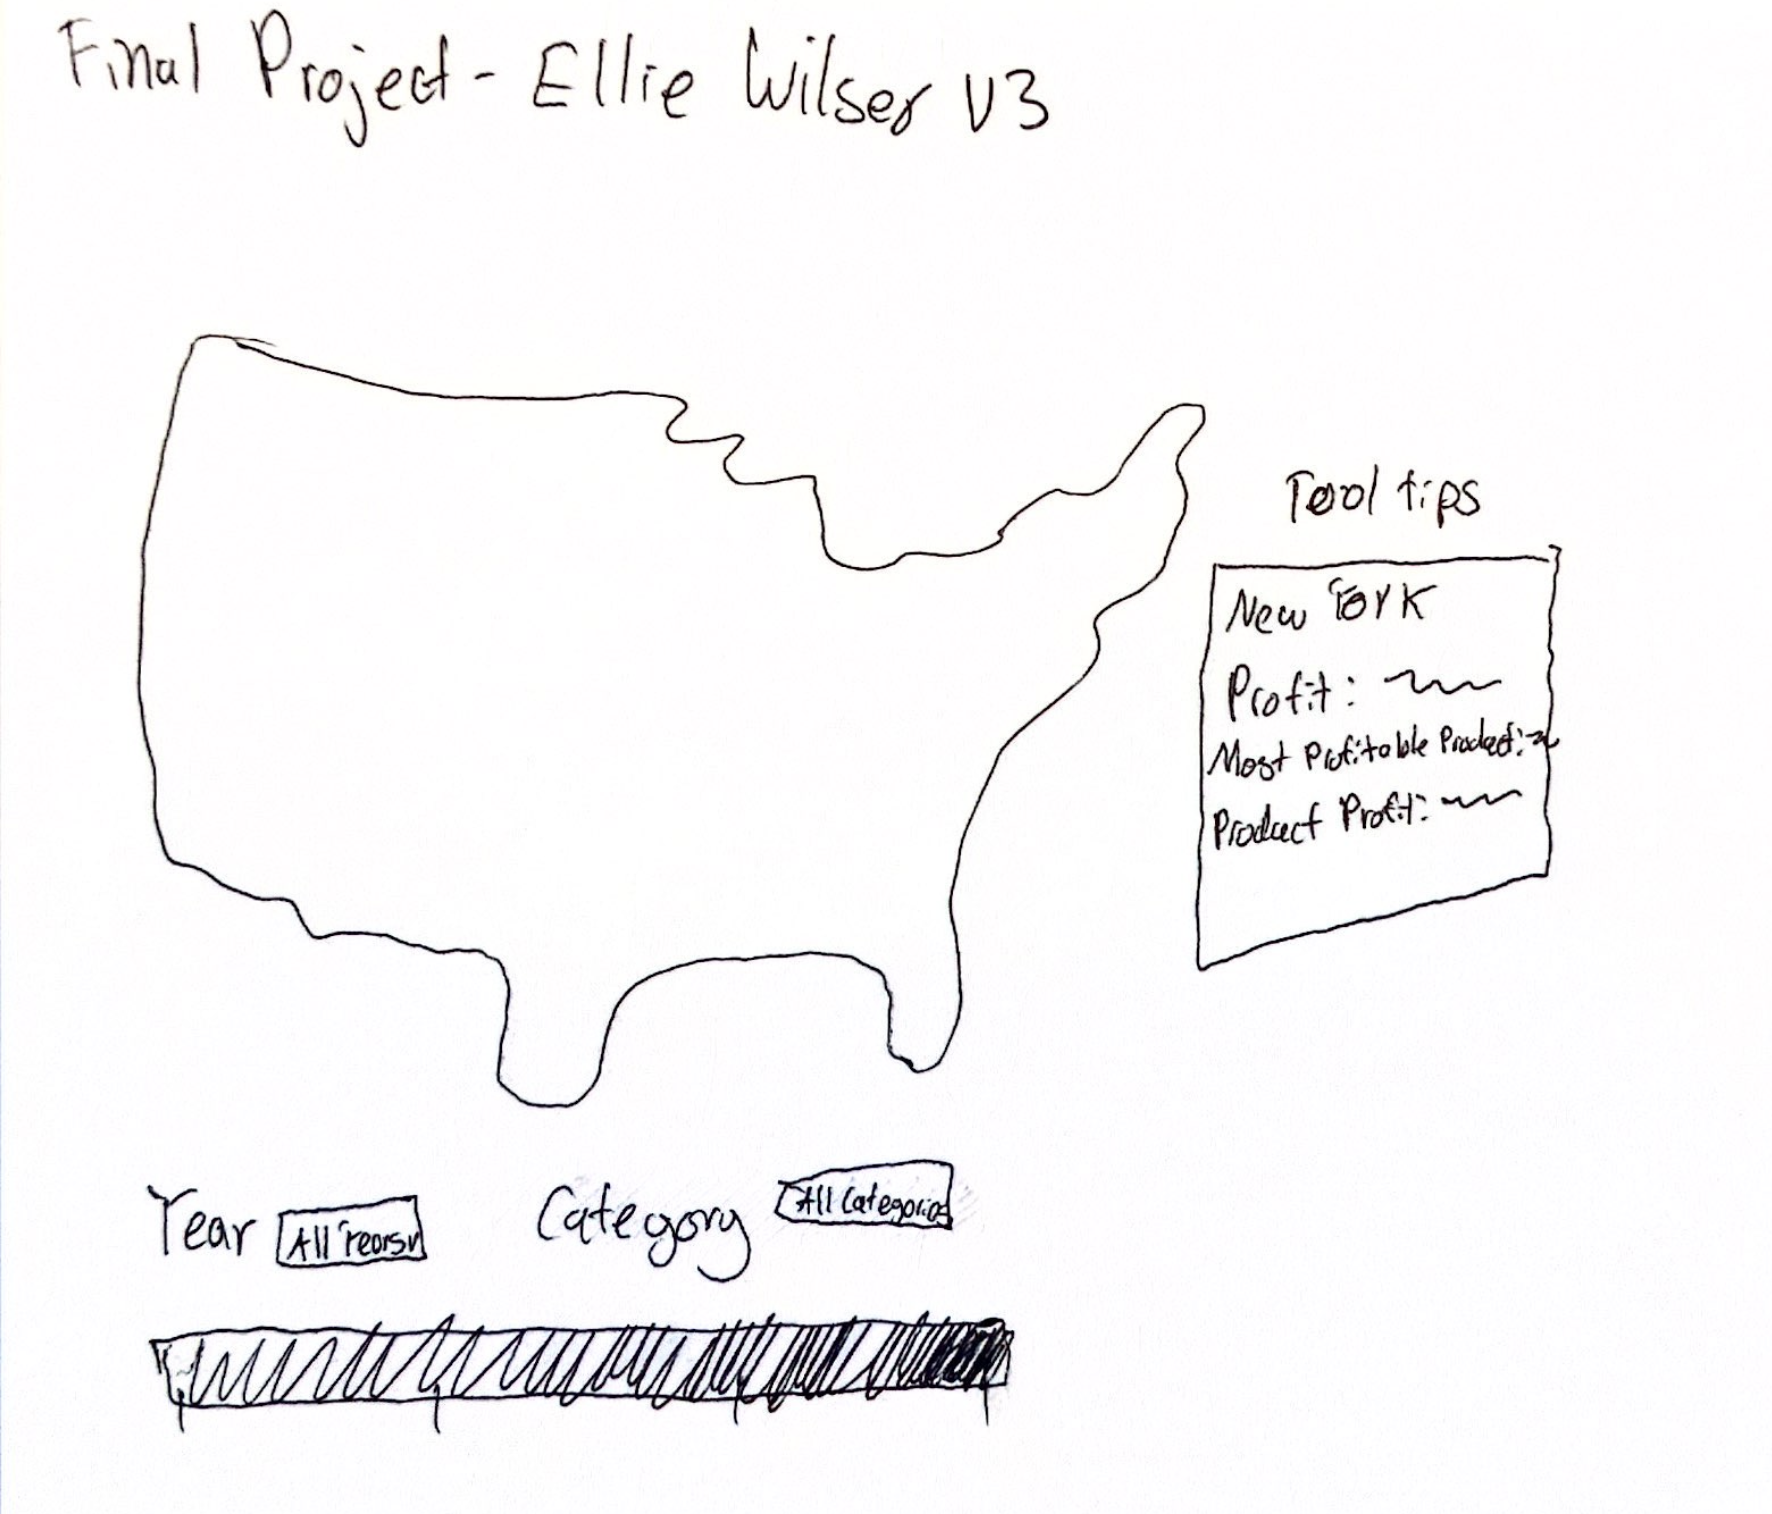 Final Project - Ellie Wilser V3
Tool tips
New York
Profit:
Most Profitable Product:
Product Profit:
Year All Years
Category All Categories